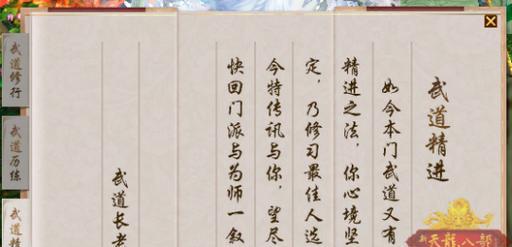 武道精进
如今本门武道又有
精进之法，你心境坚
定，乃修习最佳人选
今特传讯与你，望尽
快回门派与为师一叙
武道长老
武道修行
武道历练
武道精
新天龙八部